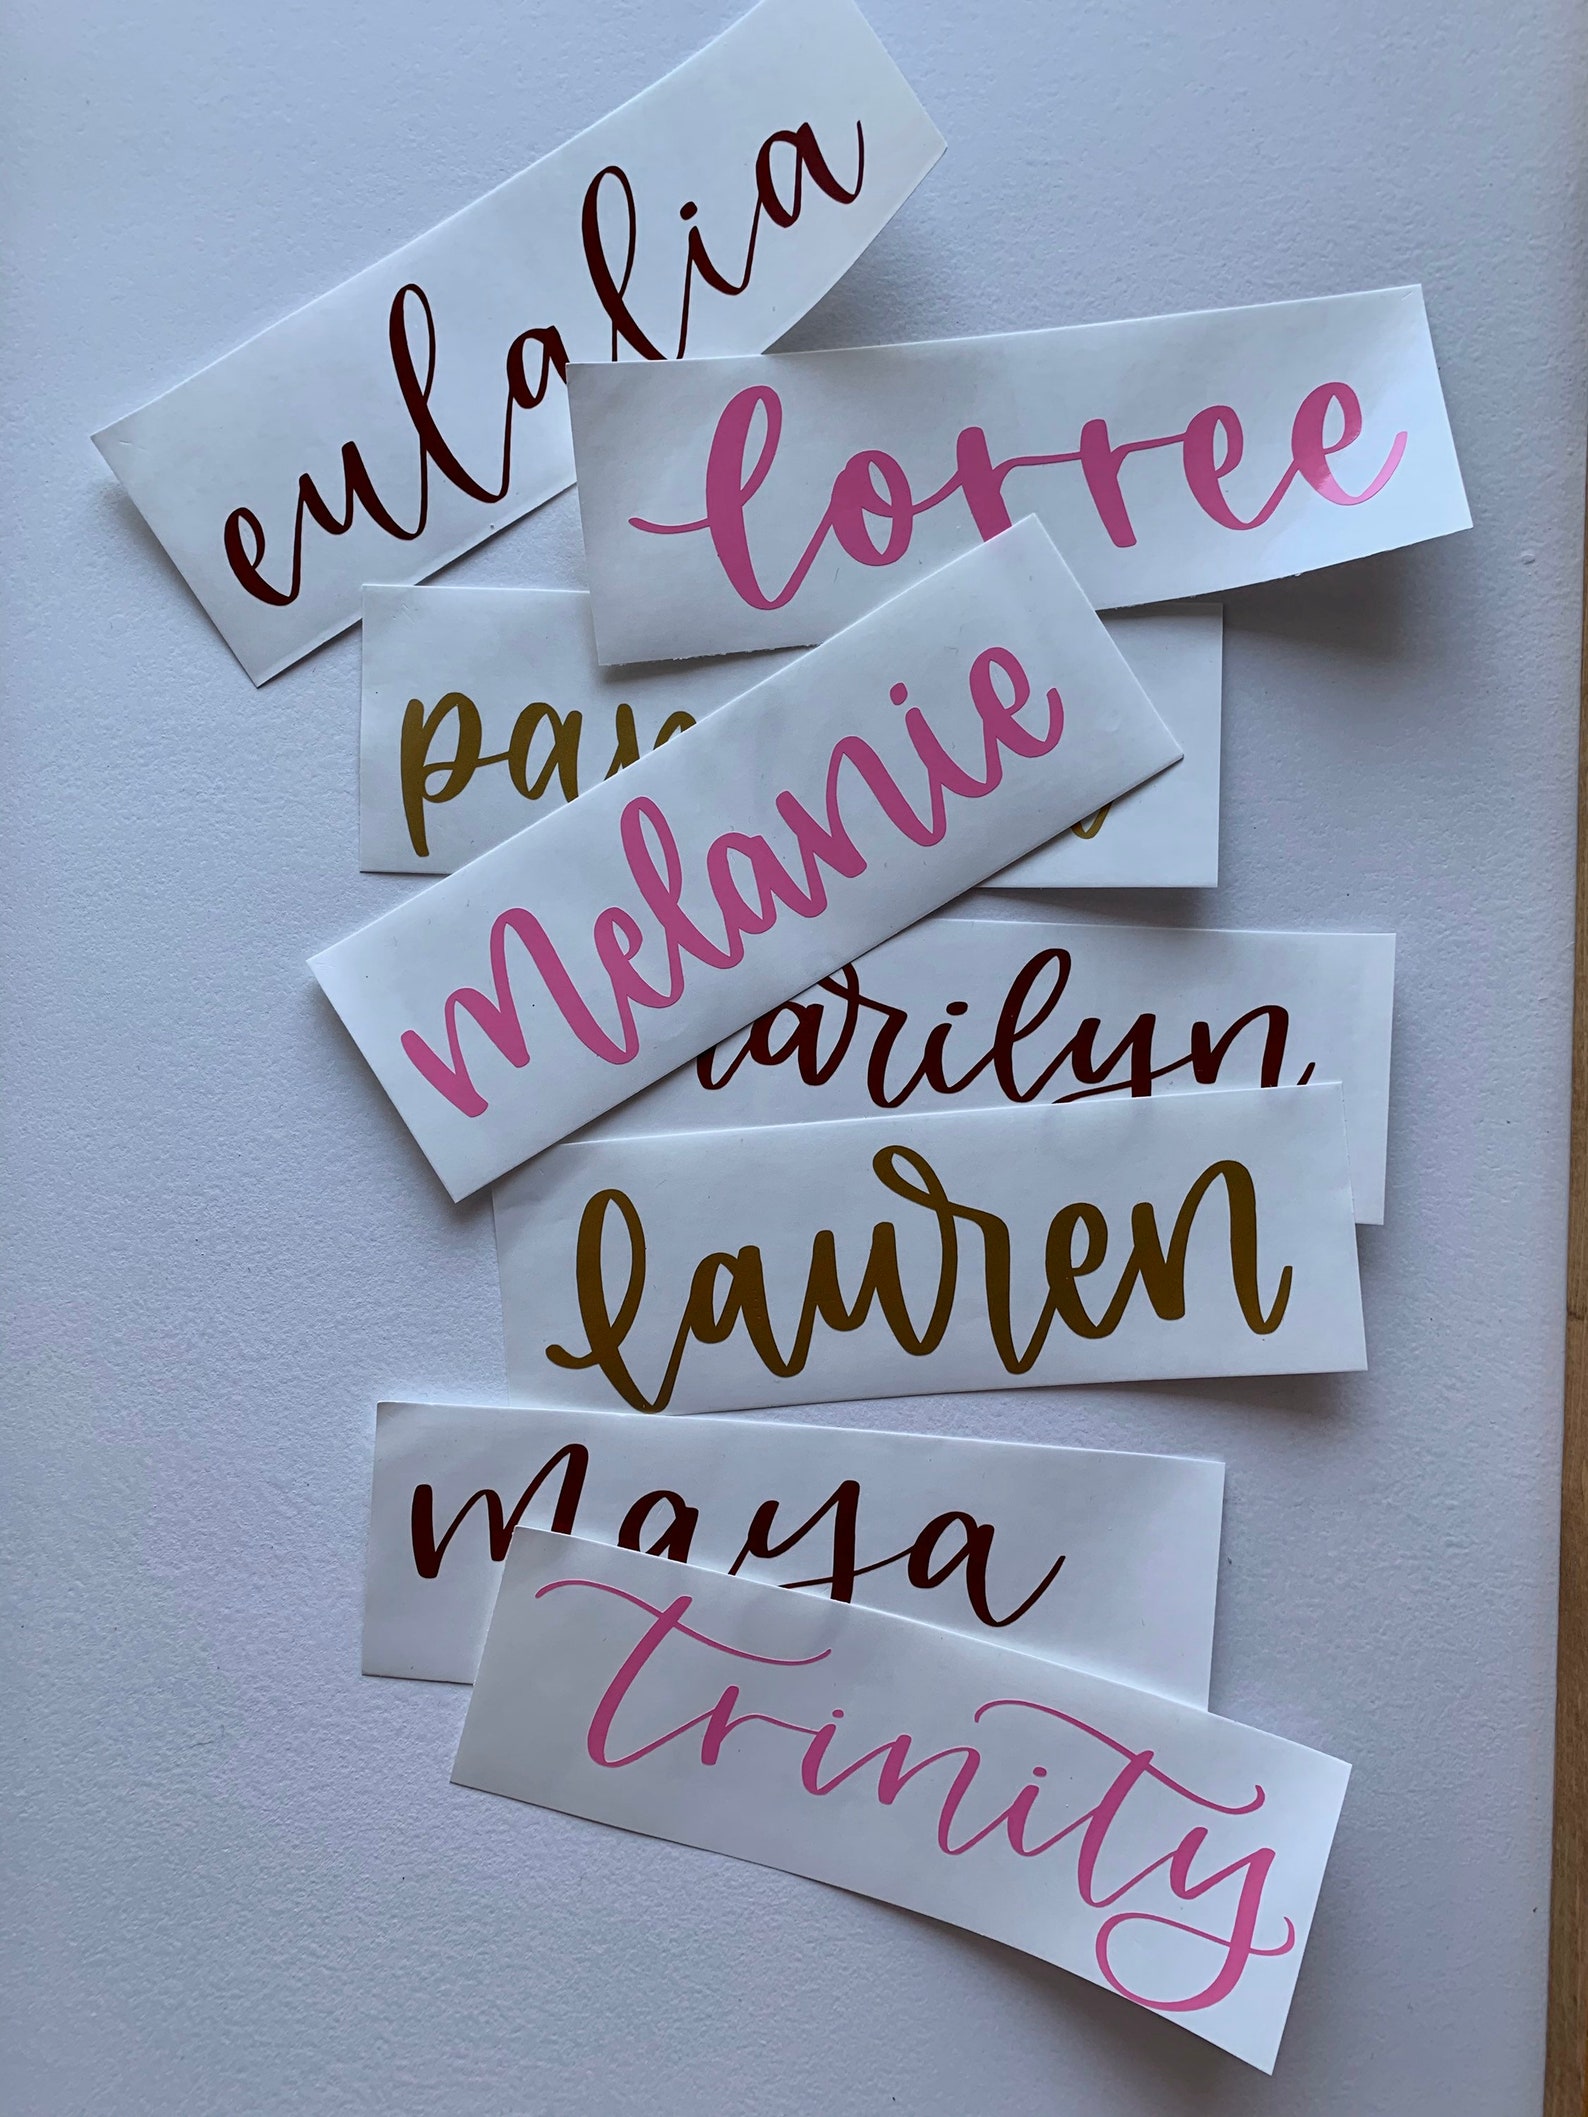 eulalia
lorree
melanie
marilyn
lauren
maya
trinity